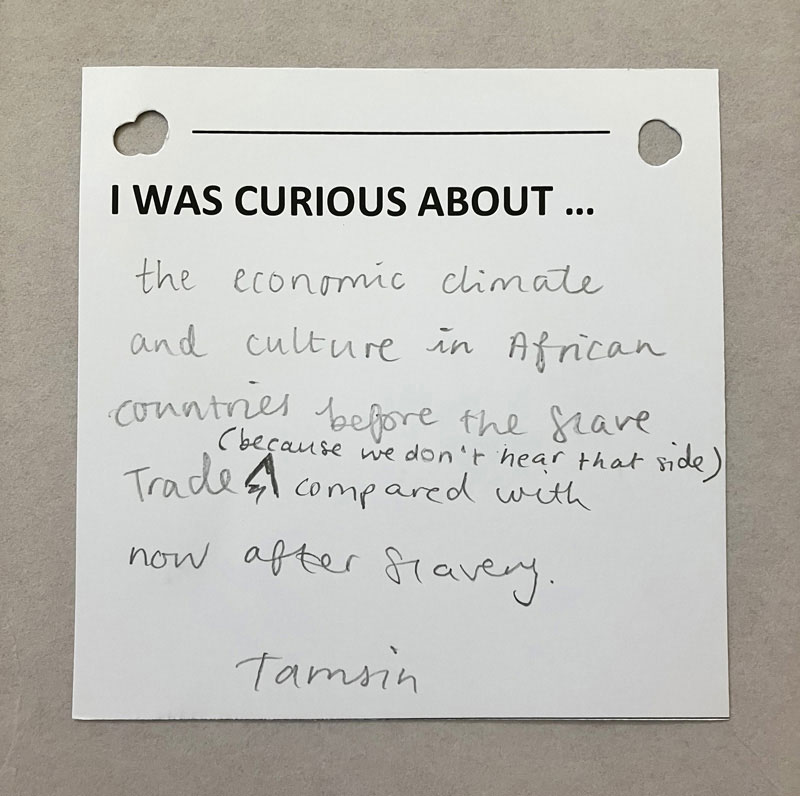 I WAS CURIOUS ABOUT ...
the economic climate
and culture in African
countries before the Slave
(because we don't hear that side)
Trade compared with
now after Slavery.
Tamsin